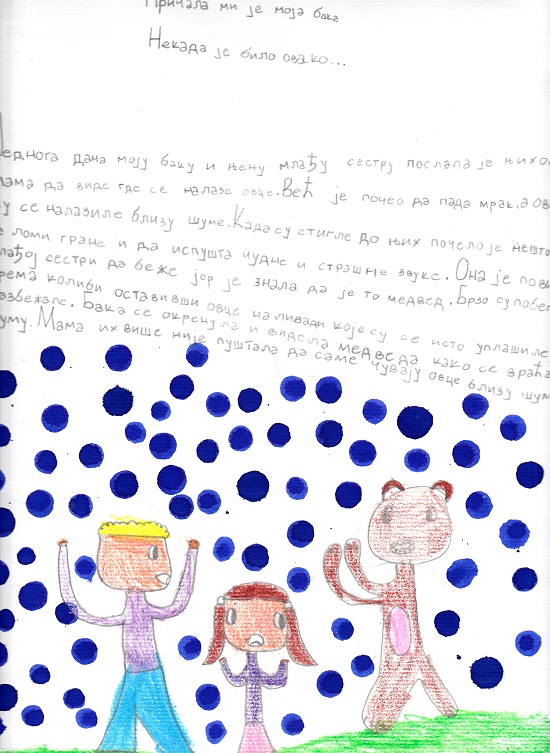 Причала ми је моја бака
Некада је било овако...
Једнога дана моју баку и њену млађу сестру послала је њихо
мама да виде где се налазе овце. Већ је почео да пада мрак, а ов
су се налазиле близу шуме. Када су стигле до њих почело је нешто
ломи гране и да испушта чудне и страшне звуке. Она је
млађој сестри да беже јер је знала да је то медвед. Брзо су побег
према колиби оставивши овце на ливади које су се исто уплашиле
разбежале. Бака се окренула и видела медведа како се враћа
шуму. Мама их више није пуштала да саме чувају овце близу шум